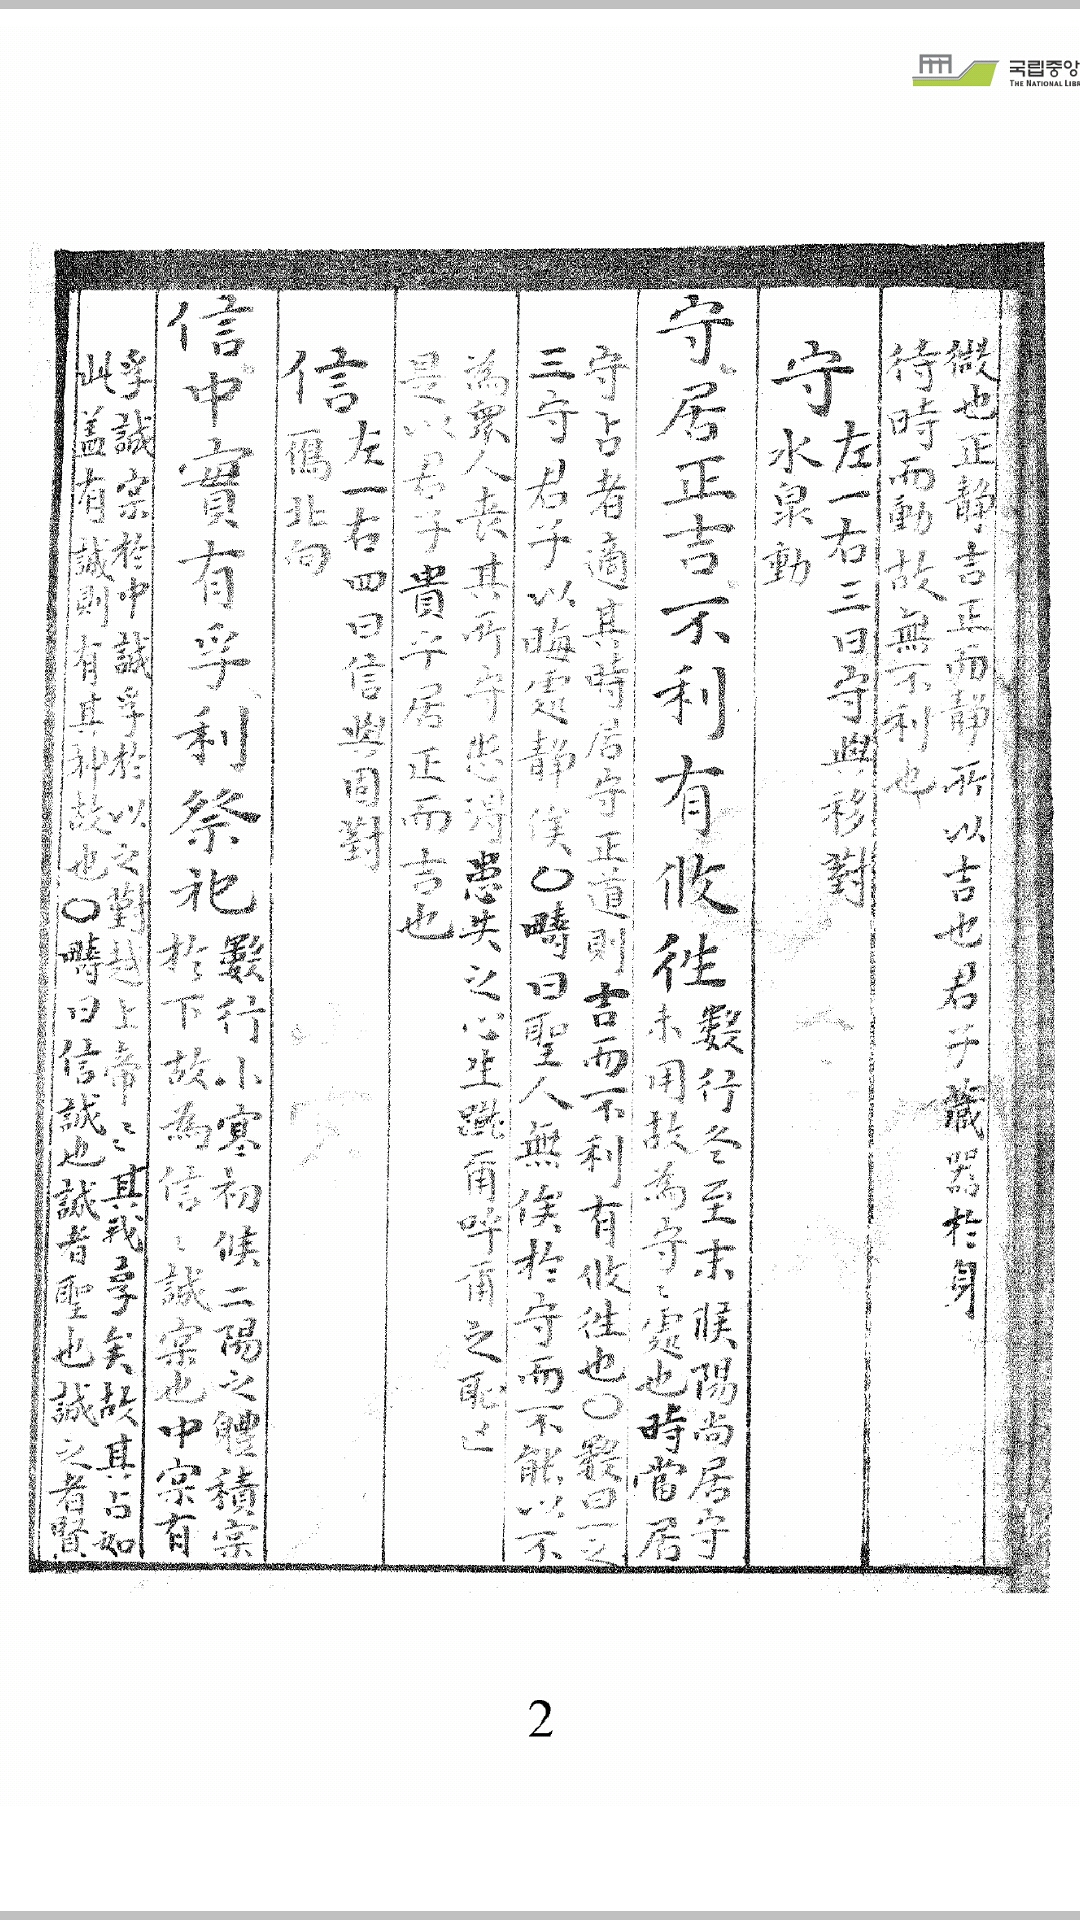 국립중앙
THE NATIONAL LIBR
微也正靜言正而靜所以吉也君子藏器於身
待時而動故無不利也
守
左一右三曰守與移對
水泉動
守居正吉不利有攸往
數行冬至末候陽尚居守
未用故為守〻處也時當居
守占者適其時居守正道則吉而不利有攸往也○數曰一之
三守君子以晦處靜俟○疇曰聖人無俟於守而不能以不
為眾人喪其所守患失之心生
是以君子貴乎居正而吉也
信
左一右四曰信與固對
鴈北向
信中實有孚利祭祀
數行小寒初候二陽之體積宲
於下故為信〻誠宲也中宲有
孚誠宲於中誠孚於以之對越上帝〻其我孚矣故其占如
此盖有誠則有其神故也○疇曰信誠也誠者聖也誠之者賢
2